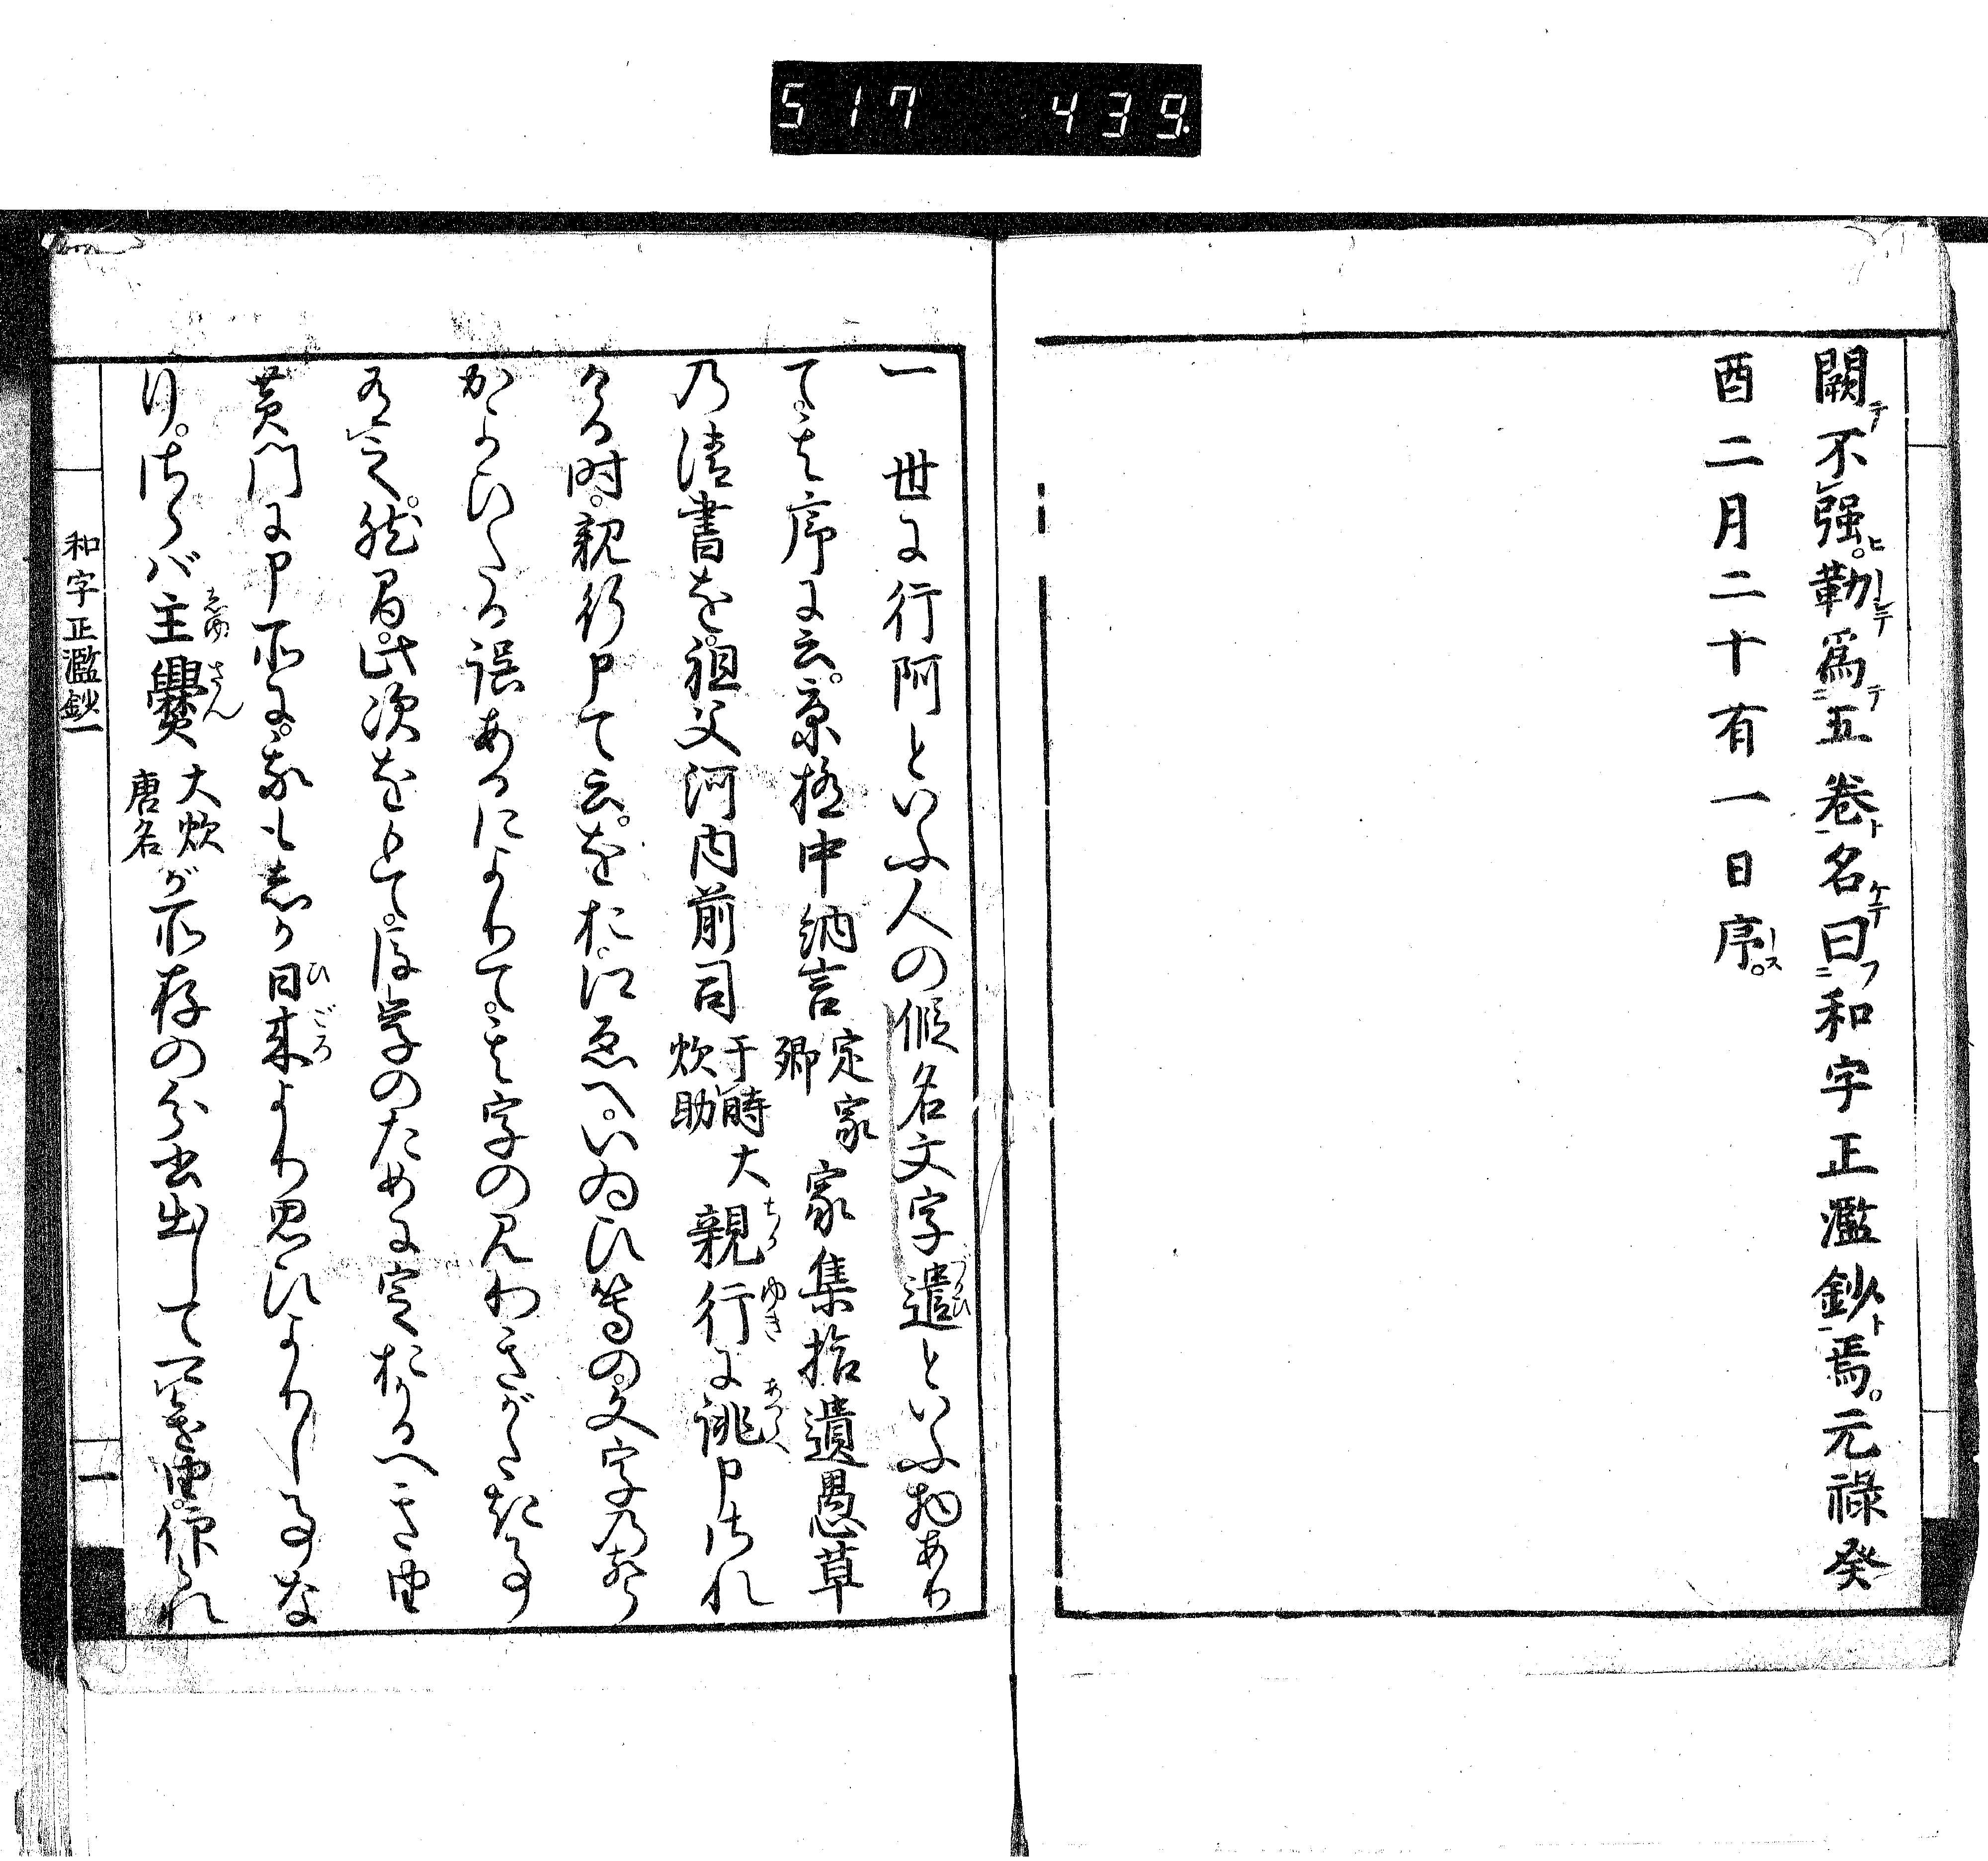 517 439
闕テ不強ヒ。勒シテ爲テ五卷ト名ケテ曰フ和字正濫鈔ト焉。元祿癸
酉二月二十有一日序ス。
一 世に行阿といふ人の假名文字遣といふ物あり
て。其序に云。京極中納言定家卿家集拾遺愚草
乃清書を。祖父河内前司于時大炊助親行に誂申され
ける時。親行申て云。をお。えゑへ。いゐひ等の文字乃聲
かよひたる誤あるによりて。其字の見わきがたき事
在之。然間。此次をもて。後学のために定おかるへき由
黄門に申所に。家もしか日来より思ひよりし事な
り。さらバ主爨大炊唐名が所存の分書出して可進由。作られ
和字正濫鈔一
一